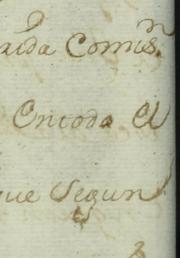 aída Comisⁿ.
En toda el
que segun